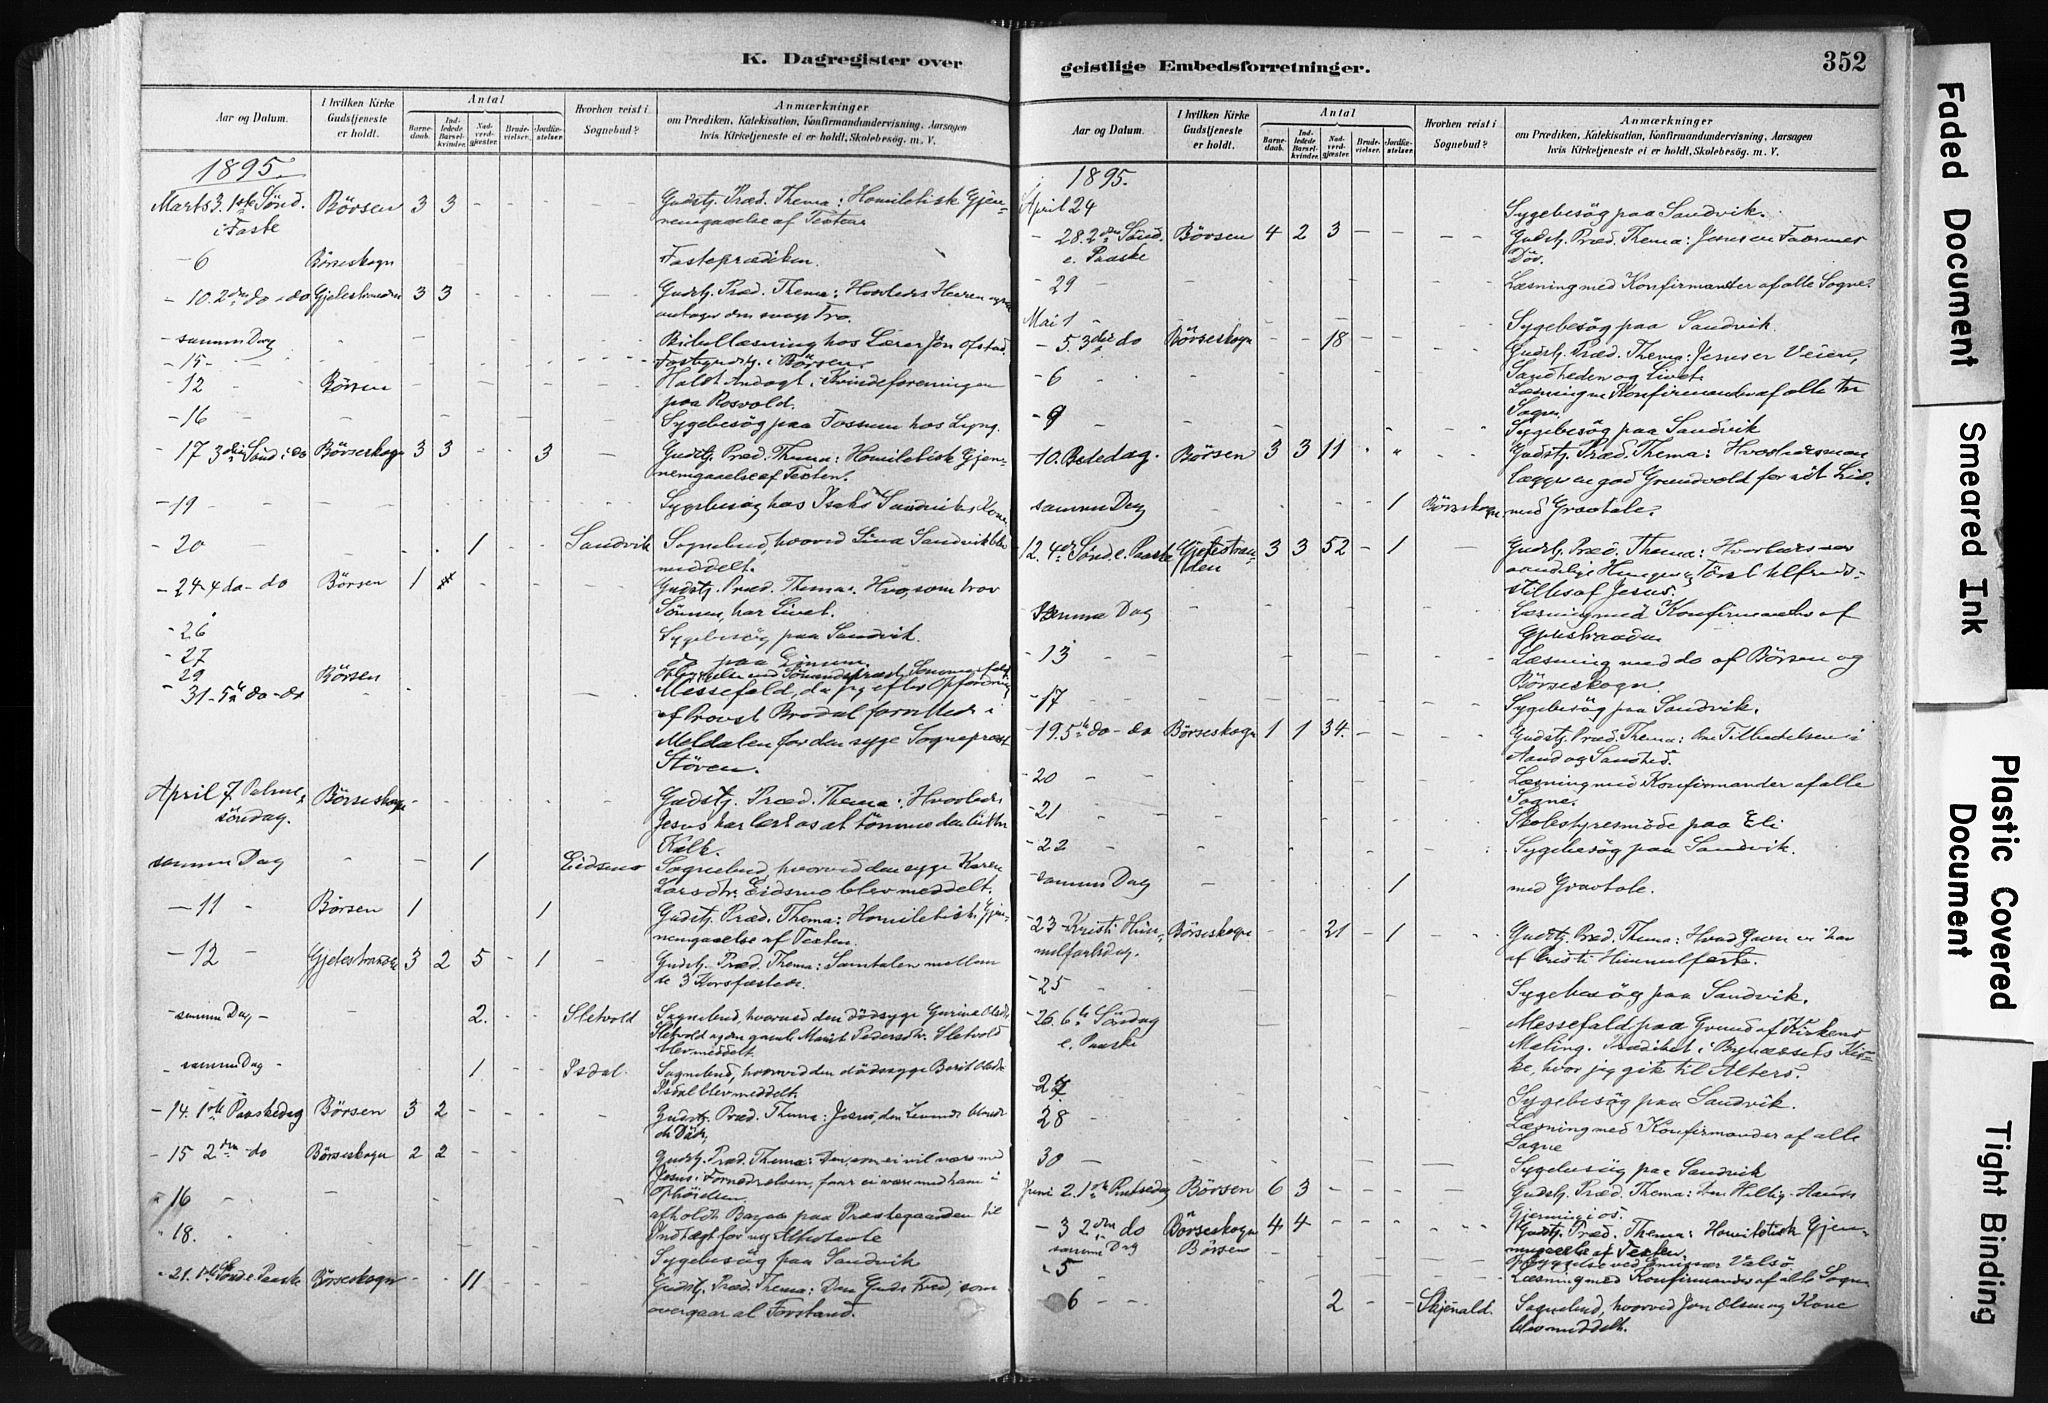 K. Dagregister over
Aar og Datum.
I hvilken Kirke Gudstjeneste er holdt.
Antal
Barnedaab.
Indledede Barselkvinder.
Nadverdgjæster.
Brudevielser.
Jordfæstelser.
Hvorhen reist i Sognebud?
Anmærkninger
om Prædiken, Katekisation, Konfirmandundervisning, Aarsagen
hvis Kirketjeneste ei er holdt, Skolebesög. m. V.
1895.
Marts 3. 1ste Sönd. Börsen 3 3 - - - Gudstj. Præd. Thema: Homiletisk Gjen-
i Faste nemgaaelse af Texten
- 6 Börseskogn Fasteprædiken.
- 10. 2den do - do 3 3 - - - Gudstj. Præd. Thema: Hvorledes Herren
antager den svage Tro.
- samme Dag Bibellæsning hos Lærer Jön Ofstad.
- 15 - Fastegudstj. i Börsen.
- 12 Börsen Holdt Andagt i Kvindeforeningen
paa Rosvold.
- 16 Sygebesög paa Fossum hos Lyng.
- 17 3die Sönd. i do Börseskogn 3 3 - - 3 - Gudstj. Præd. Thema: Homiletisk Gjen-
nemgaaelse af Texten.
- 19 Sygebesög hos Isak Sandviks Kone
- 20 1 Sandvik Sognebud, hvorved Lina Sandvik blev
meddelt.
- 24 - 4 do - do Börsen 1 Gudstj. Præd. Thema: Hvo, som tror
Sönnen, har Livet.
- 26 Sygebesög paa Sandvik.
- 27 paa
29 Börsen
- 31 - 5te do - do Messefald, da jeg efter Opfordring
af Provst Brodal forrettede i
Meldalen for den syge Sogneprest
Stören.
April 7 Palme- Börseskogn Gudstj. Præd. Thema: Hvorledes
söndag. Jesus har lært os at tömme den bittre
Kalk.
samme Dag 1 Eidsmo Sognebud, hvorved den syge Karen
Larsdtr. Eidsmo blev meddelt.
- 11 Börsen 1 1 Gudstj. Præd. Thema: Homiletisk Gjen-
nemgaaelse af Texten.
- 12 3 2 5 - 1 Gudstj. Præd. Thema: Samtalen mellem
de 3 Korsfæstede.
- samme Dag - 2. - - Sletvold Sognebud, hvorved den dödssyge Gurine Olsdtr.
Sletvold og den gamle Marit Pedersdtr. Sletvold
blev meddelt.
- samme Dag - 1 Isdal. Sognebud, hvorved den dödssyge Berit Olsdtr.
Isdal blev meddelt.
- 14. 1ste Paaskedag Börsen 3 2 - - - Gudstj. Præd. Thema: Jesus, den Levende blandt
de Döde,
- 15 2den do Börseskogn 2 2 Gudstj. Præd. Thema: Den, som ei vil være med
Jesus i Fornedrelsen, faar ei være med ham i
Ophöielsen
" 16 afholdt Bazar paa Præstegaarden til
Indtægt for ny Altertavle
" 18. Sygebesög paa Sandvik
" 21. 1ste Sönd. e. Paaske Börseskogn 11 Gudstj. Præd. Thema: Den Guds Fred, som
overgaar al Forstand.
geistlige Embedsforretninger.
352
Aar og Datum.
I hvilken Kirke Gudstjeneste er holdt.
Antal
Barnedaab.
Indledede Barselkvinder.
Nadverdgjæster.
Brudevielser.
Jordfæstelser.
Hvorhen reist i Sognebud?
Anmærkninger
om Prædiken, Katekisation, Konfirmandundervisning, Aarsagen
hvis Kirketjeneste ei er holdt, Skolebesög. m. V.
1895.
April 24 Sygebesög paa Sandvik.
- 28. 2den Sönd. Börsen 4 2 3 - - Gudstj. Præd. Thema: Jesus en Faarenes
e. Paaske Dör.
- 29 Læsning med Konfirmanter af alle Sogne.
Mai 1 Sygebesög paa Sandvik.
- 5. 3die do Börseskogn - - 18 - - Gudstj. Præd. Thema: Jesus er Veien,
Sandheden og Livet.
- 6 Læsning m. Konfirmander af alle
Sogne.
- 9 Sygebesög paa Sandvik
- 10. Bededag. Börsen 3 3 11 Gudstj. Præd. Thema: Hvorledes man
lægger en god Grundvold for sit Liv.
samme Dag - - 1 Börseskogn med Gravtale.
12. 4de Sönd. e. Paaske Gjelestran- 3 3 52 - 1 Gudstj. Præd. Thema: Hvorledes vor
den aandelige Hunger og Törst tilfreds-
stilles af Jesus.
Samme Dag Læsning med Konfirmander af
- 13 Læsning med do af Börsen og
Börseskogn.
- 17 Sygebesög paa Sandvik.
- 19. 5te do - do Börseskogn 1 1 34. - - Gudstj. Præd. Thema: Om Tilbedelsen i
Aand og Sandhed.
- 20 Læsning med Konfirmander af alle
Sogne.
- 21 Skolestyresmöde paa Eli
- 22 Sygebesög paa Sandvik.
samme Dag 1 med Gravtale.
- 23 - Kristi Him- Börseskogn 21 - 1 Gudstj. Præd. Thema: Hvad Gavn vi har
melfartsdag. af Kristi Himmelfart.
- 25 Sygebesög paa Sandvik.
- 26. 6te Söndag Messefald paa Grund af Kirkens
e. Paaske Maling. Prædiket i Bynæssets Kir-
ke, hvor jeg gik til Alters.
- 27 Sygebesög paa Sandvik.
- 28 Læsning med Konfirmander af alle
Sogne
- 30 Sygebesög paa Sandvik
Juni 2. 1ste Pintsedag Börsen 6 3 - Gudstj. Præd. Thema: Den Hellig-Aands
Gjerning i os.
- 3 2den do Börseskogn 4 4 - Gudstj. Præd. Thema: Homiletisk Gjen-
nemgaaelse af Texten.
samme Dag Börsen ved Valsö
" 5 Læsning med Konfirmander af alle Sogne
- 6 - - 2 - - Skjenald. Sognebud, hvorved Jon Olsen og Kone
blev meddelt.
Faded Document
Smeared Ink
Plastic Covered
Document
Tight Binding